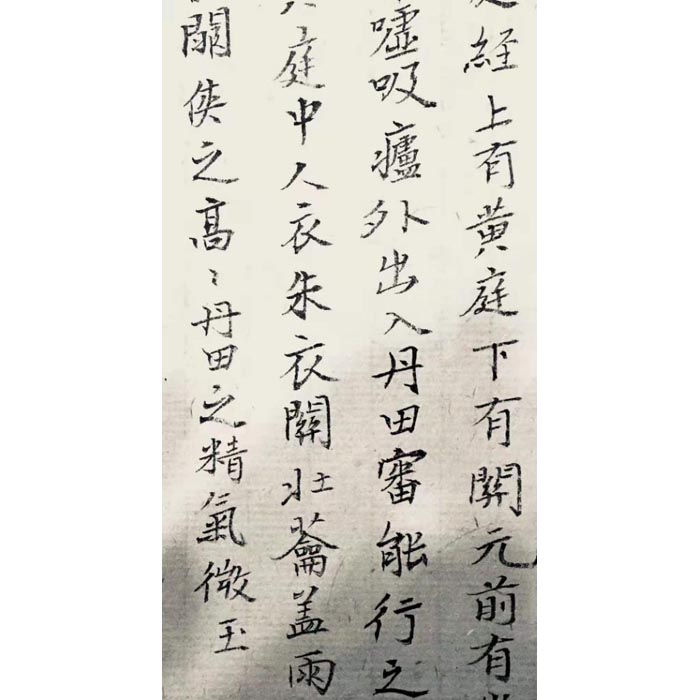 経上有黄庭下有關元前有
噓吸廬外出入丹田審能行之
庭中人衣朱衣關壯蘥盖兩
關俠之高〻丹田之精氣微玉